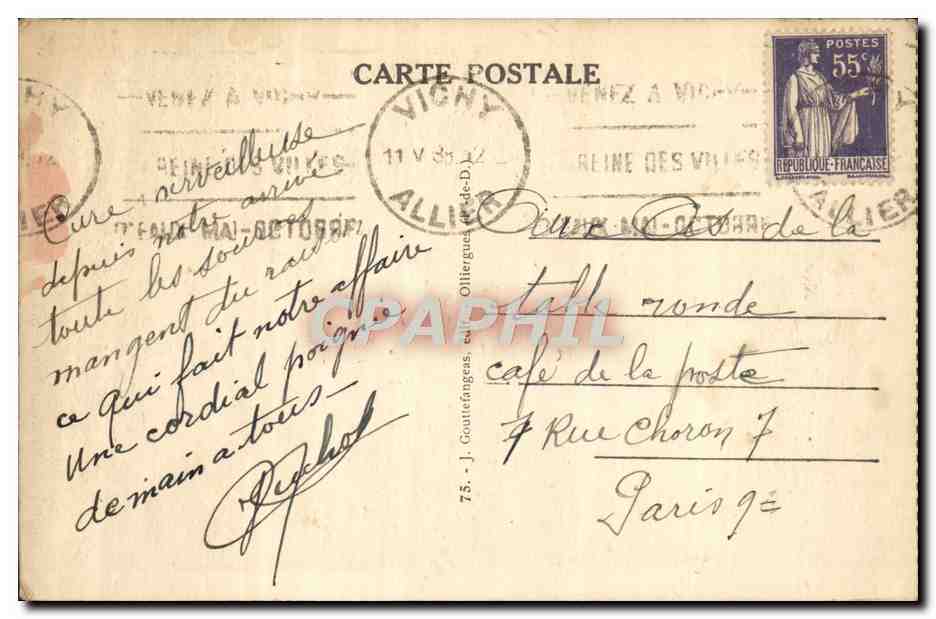 CARTE POSTALE
POSTES
55c
REPUBLIQUE-FRANÇAISE
VENEZ A VICHY
REINE DES VILLES
MAI-OCTOBRE
VICHY
11 V 38
ALLIER
VENEZ A VICHY
REINE DES VILLES
MAI-OCTOBRE
ALLIER
Cure merveilleuse
depuis notre arrivé
toute les sources
mangent du
ce qui fait notre affaire
Une cordial poignie
de main a tous
75. - J. Gouttefangeas, édit., Olliergues (P.-de-D.)
Aux As de la
table ronde
café de la poste
7 Rue Choron 7
Paris 9e
CPAPHIL